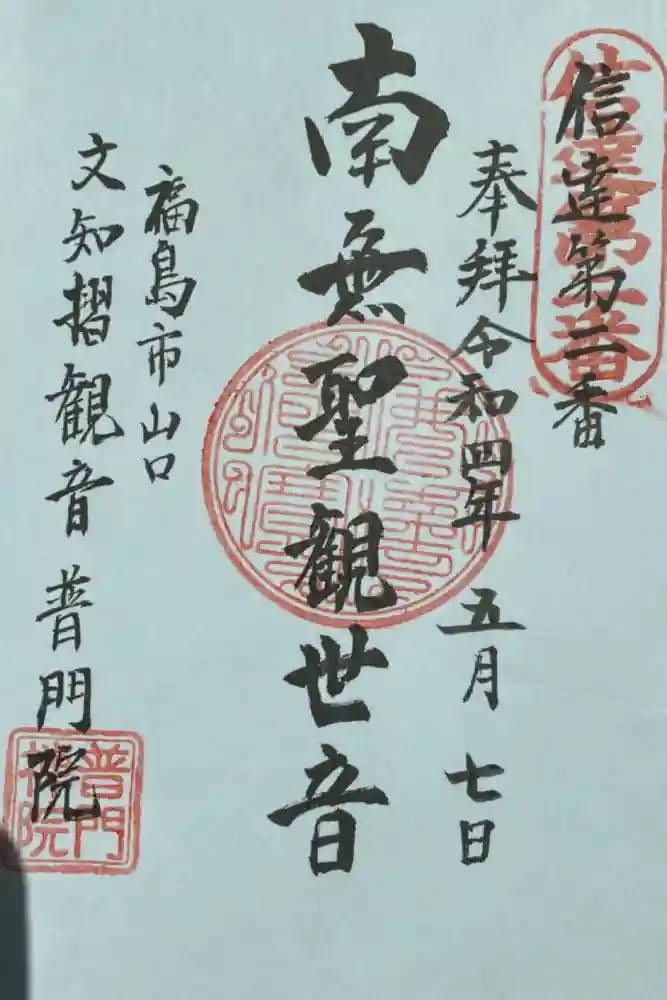 信達第二番
奉拜令和四年 五月 七日
南無聖觀世音
福島市山口
文知摺観音 普門院
普門院